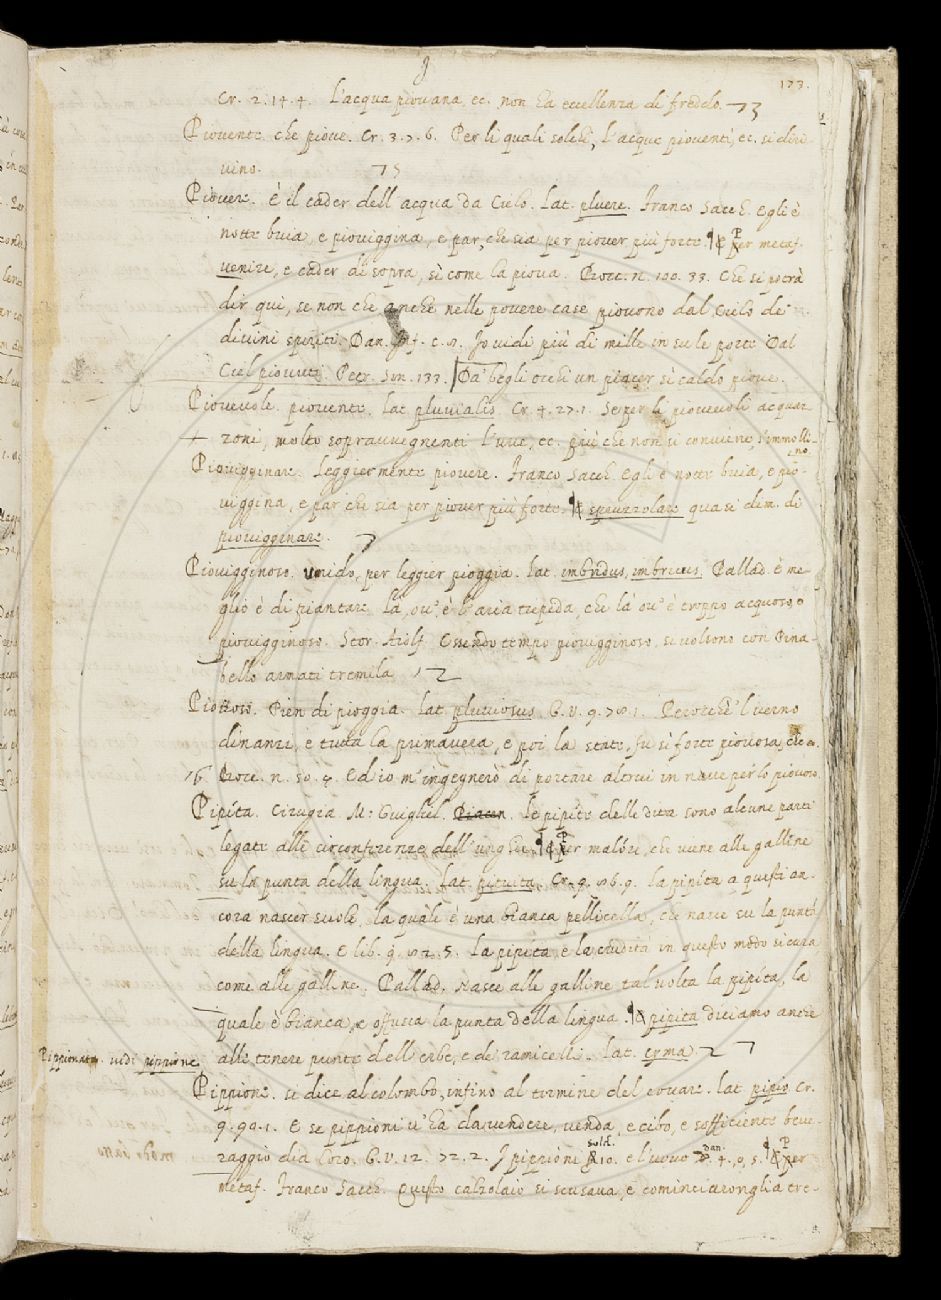 173.
Cr. 2. 14. 4. L'acqua piovana, ec. non ha eccellenza di freddo.
Piovente. che piove. Cr. 3. 7. 6. Per li quali solchi, l'acque pioventi, ec. si diri-
vino.
Piovere. È il cader dell acqua da Cielo. Lat. pluere. Franco Sacch. Egli è
notte buia, e pioviggina, e par, che sia per piover più forte. ¶ Per metaf.
venire, e cader di sopra, sì come la piova. Bocc. n. 100. 33. Che si potrà
dir qui, se non che anche nelle povere case piovono dal Cielo de
divini spiriti. Dan. Inf. c. 8. Io vidi più di mille in su le porte Dal
Ciel piovuti. Petr. Son. 133. Da' begli occhi un piacer sì caldo piove.
Piovevole. piovente. Lat. pluvialis. Cr. 4. 27. 1. Se per li piovevoli acquaz
zoni, molto sopravvegnenti l'uve, ec. più che non si conviene, s'immolli-
no.
Piovigginare. Leggiermente piovere. Franco Sacch. Egli è notte buia, e pio-
viggina, e par che sia per piover più forte. ¶ spruzzolare quasi dim. di
piovigginare.
Piovigginoso. Umido, per leggier pioggia. Lat. imbridus, imbricus. Pallad. è me-
glio è di piantare là, ov' è l'aria tiepida, che là ov' è troppo acquoso, o
piovigginoso. Stor. Aiolf. Essendo tempo piovigginoso, si volsono con Pina-
bello armati tremila
Piovoso. Pien di pioggia. Lat. pluviosus. G. V. 9. 78. 1. Perocchè 'l verno
dinanzi, e tutta la primavera, e poi la state, fu sì forte piovosa, che ec.
Bocc. n. 50. 9. Ed io m' ingegnerò di portare altrui in nave per lo piovoso.
Pipíta. Cirugia M. Guigliel. le pipite delle dita sono alcune parti
legate alle circonferenze dell' unghia. ¶ Per malóre, che viene alle galline
su la punta della lingua. Lat. pituita. Cr. 9. 86. 9. La pipíta a questi an-
cora nascer suole, la quale è una bianca pellicella, che nasce su la punta
della lingua. E lib. 9. 82. 5. La pipita, e la crudità in questo modo si cura,
come alle galline. Pallad. Nasce alle galline tal volta la pipíta, la
quale è bianca, e offusca la punta della lingua. ¶ pipita diciamo anche
alle tenere punte dell erbe, e de' ramicelli. Lat. cyma.
Pippionata. vedi pippione
Pippione. si dice al colombo, infino al termine del covare. Lat. pipio. Cr.
9. 90. 1. E se pippioni v' ha da vendere, venda, e cibo, e sofficiente beve-
raggio dia loro. G. V. 12. 72. 2. I pippioni sold. 10. e l'uovo dan. 4. o, 5. ¶ Per
metaf. Franco Sacch. Questo calzolaio si scusava, e cominciarongli a cre-